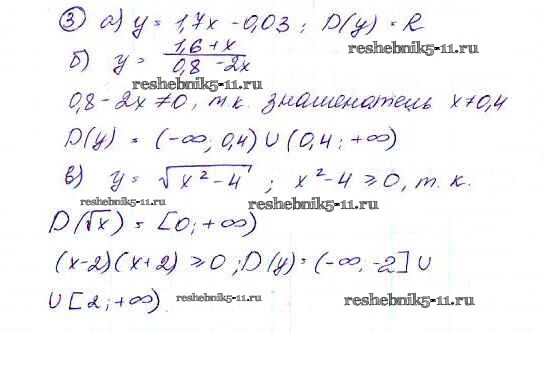 ③ а) y = 1,7x - 0,03 ; D(y) = R
reshebnik5-11.ru
б) y = (1,6 + x)/(0,8 - 2x)
reshebnik5-11.ru
0,8 - 2x ≠ 0, т.к. знаменатель x ≠ 0,4
reshebnik5-11.ru
D(y) = (-∞; 0,4) ∪ (0,4; +∞)
в) y = √(x² - 4) ; x² - 4 ≥ 0, т.к.
reshebnik5-11.ru
reshebnik5-11.ru
D(√x) = [0; +∞)
(x-2)(x+2) ≥ 0 ; D(y) = (-∞; -2] ∪
∪ [2; +∞)
reshebnik5-11.ru
reshebnik5-11.ru